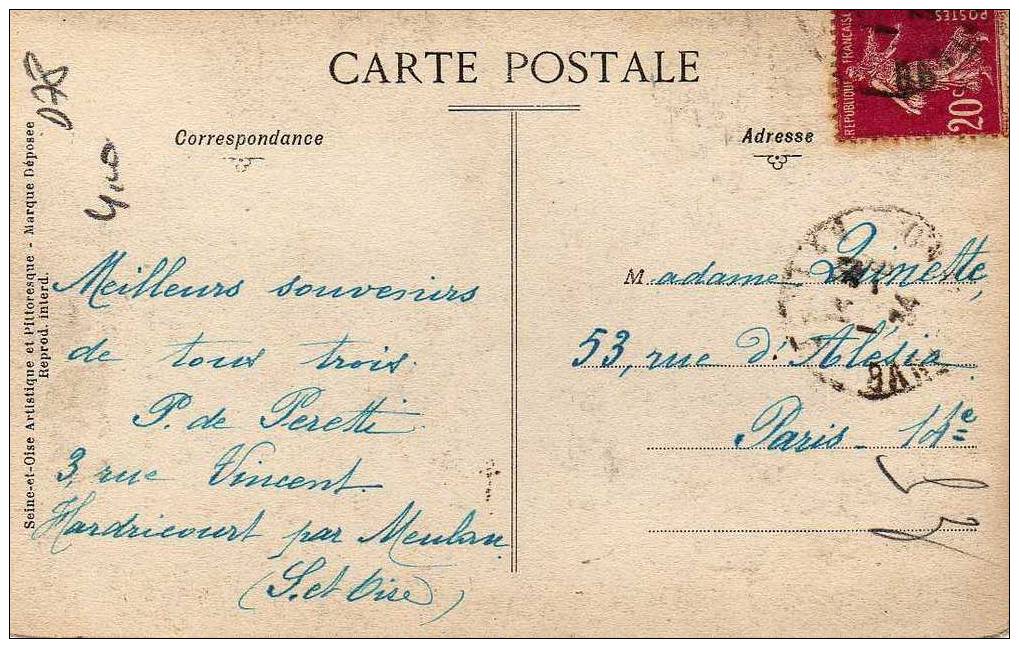 CARTE POSTALE
Correspondance
Adresse
RÉPUBLIQUE FRANÇAISE
POSTES
20 c
Seine-et-Oise Artistique et Pittoresque - Marque Déposée
Reprod. interd.
078
Meilleurs souvenirs
de tous trois.
P. de Peretti
3, rue Vincent.
Hardricourt par Meulan
(S. et Oise)
Madame Quinette,
53, rue d'Alésia
Paris - 14e